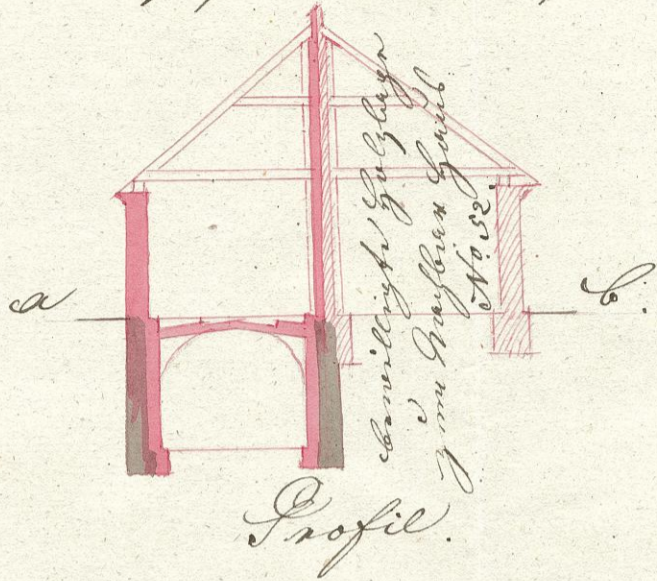 a
b.
bewilligte Holzlage
zum Nachbar Haus
No 52.
Profil.